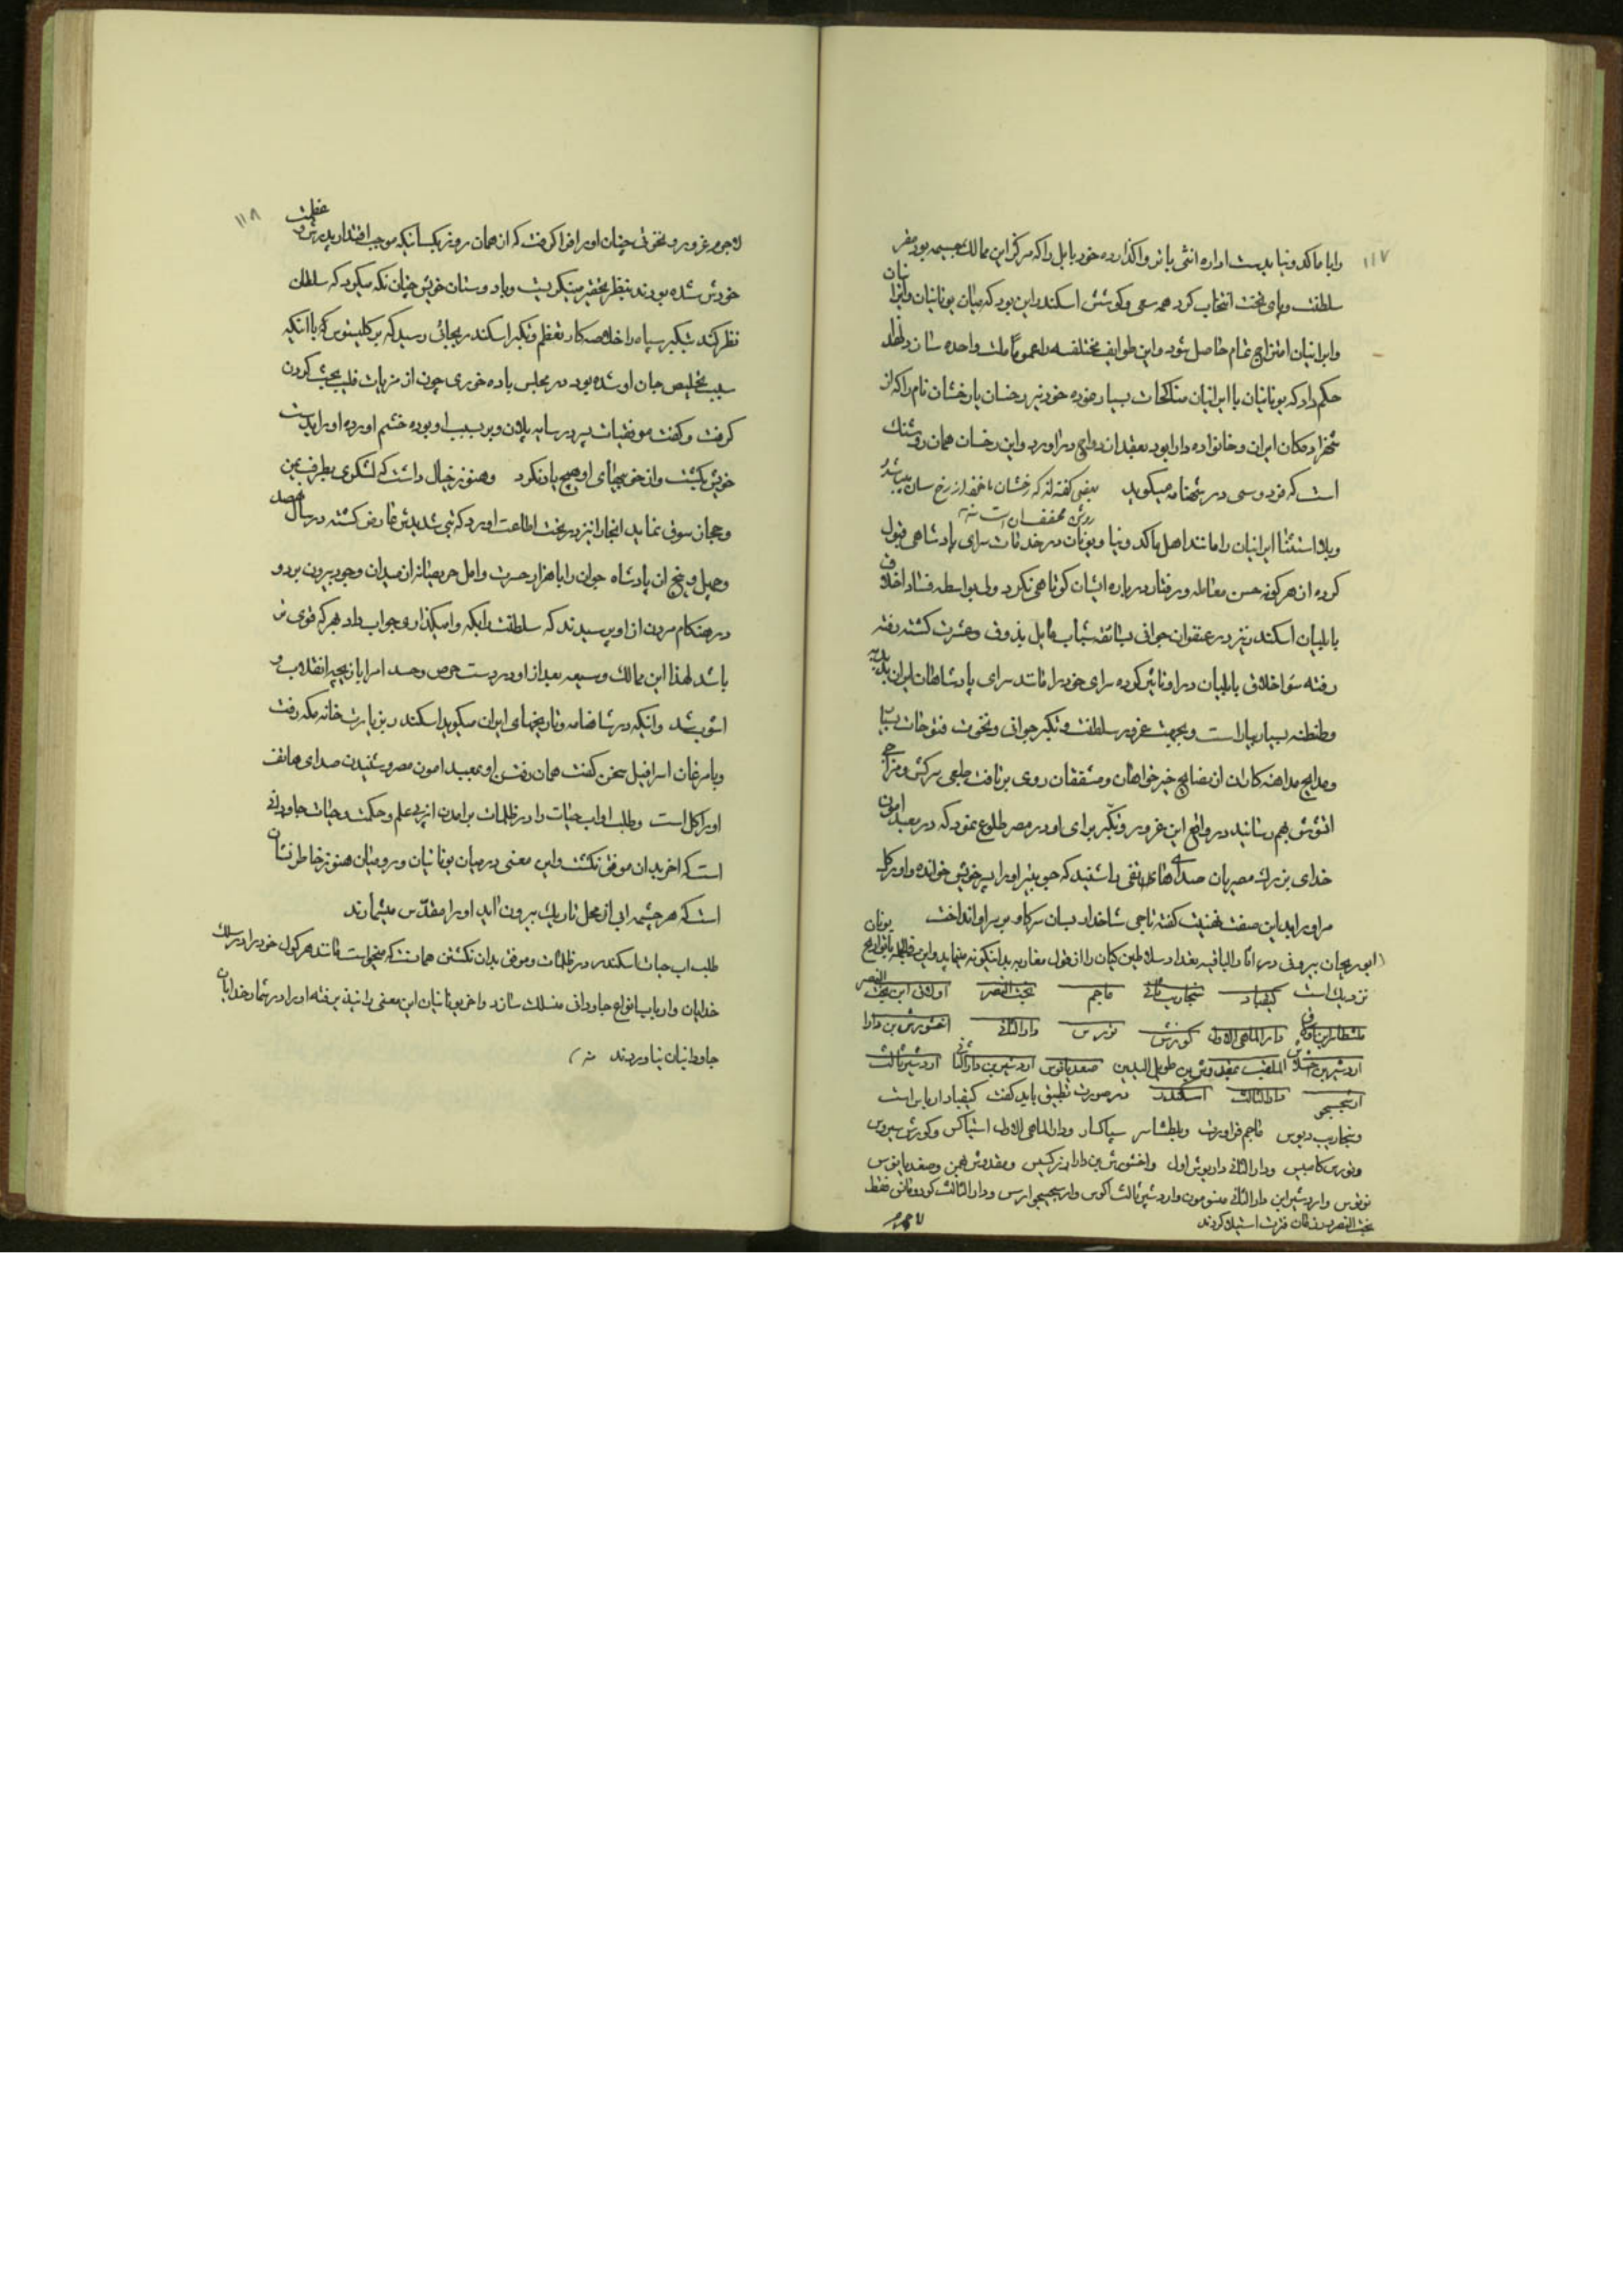 ۱۱۷
را با ماکدونیا بدست اداره انتی پاتر واگذارده خود بابل را که مرکز این ممالک وسیعه بود مقر
سلطنت و پای تخت انتخاب کرد همه سعی و کوشش اسکندر این بود که میان یونانیان
و ایرانیان امتزاج تمام حاصل شود و این طوایف مختلفه را عموماً ملت واحده سازد لهذا
حکم داد که یونانیان با ایرانیان مناکحات بسیار نموده خود نیز رخسان یا رخشان نام را که از
شهزادگان ایران و خانواده دارا بود بعقد ازدواج در آورد و این رخسان همان روشنک
است که فردوسی در شهنامه میگوید بعضی گفته اند که رخشان ماخوذ از رخ سان میباشد
روشن مخفف ان است منه
و بلا استثنا ایرانیان را مانند اهل ماکدونیا و یونان در خدمات سرای پادشاهی قبول
کرده از هر گونه حسن معامله و رفتار درباره ایشان کوتاهی نکرد ولی بواسطه فساد اخلاق
بابلیان اسکندر نیز در عنفوان جوانی بسائقه شباب مایل بذوق و عشرت گشته رفته
رفته سؤ اخلاق بابلیان در او تاثیر کرده سرای خود را مانند سرای پادشاهان ایران
و طنطنه بسیار بیاراست و بجهت غرور سلطنت و تکبر جوانی و نخوت فتوحات
و مدایح مداهنه کاران از نصایح خیرخواهان و مشفقان روی برتافت طبعی سرکش و مزاجی
اتشوش بهم رسانید در واقع این غرور و تکبر برای او در مصر طلوع نمود که در معبد امون
خدای بزرگ مصریان صدای هاتفی را شنید که جوپیتر او را پسر خویش خوانده و او را
مر او را بدین صفت تهنیت گفته تاجی شاخدار بسان سر گاو بر سر او انداخت
(ابو ریحان بیرونی در اثار الباقیه بغداد سلاطین کیان را از قول مغاربه بدینگونه مینماید و این با تواریخ یونان
نزدیک است کیقباد سنجاریب ثانی ماجم بخت النصر اولات ابن بخت النصر
بلطشاصر ابن اولات دارا الماهی الاول کورش قورس دارا الثانی اخشورش بن دارا
اردشیر بن اخشورش الملقب بمقروشر بن طویل الیدین صغدیانوس اردشیر بن دارا الثانی اردشیر ثالث
ارسیخو دارا الثالث اسکندر در صورت تطبیق باید گفت کیقباد ارباس است
و سنجاریب دیوس ماجم فراورت و بلطشاسر سیاکسار و دارا الماهی الاول استیاکس و کورش سیروس
و قورس کامبیس و دارا الثانی داریوش اول و اخشورش بن دارا زرکسیس و مقروشر بهمن و صغدیانوس
نوتوس و اردشیر ابن دارا الثانی منومون و اردشیر ثالث اکوس و ارسیخو ارس و دارا الثالث کودومانس فقط
بخت النصر در زمان فترت استیلا کردند
۱۱۸
لاجرم غرور و نخوتی چنان او را فرا گرفت که از همان روز بکسانیکه موجب اقتدار پدرش و عظمت
خودش شده بودند بنظر تحقیر مینگریست و با دوستان خویش چنان نگه میکرد که سلطان
نظر کند بتکبر سپاه را خلاصه کار تعظم و تکبر اسکندر بجائی رسید که بر کلیتوس که با انکه
سبب تخلیص جان او شده بود در مجلس باده خوری چون از مزیات فلیب بحث کردن
گرفت و گفت موفقیات پسر در سایه پدران و بر سبب او بوده خشم اورده او را بدست
خویش بکشت و از خوبیهای او هیچ یاد نکرد و هنوز خیال داشت که لشکری بطرف یمن
و حجاز سوق نماید انجا را نیز در تحت اطاعت اورد که تبی شدیدش عارض گشته در سال سیصد
و چهل و پنج ان پادشاه جوان را با هزار حسرت و امل حریصانه از میدان وجود بیرون برد و
در هنگام مردن از او پرسیدند که سلطنت را بکه وا میگذاری جواب داد بهر که قوی تر
باشد لهذا این ممالک وسیعه بعد از او در دست حرص و حسد امرا بازیچه انقلاب و
اشوب شد و انکه در شاهنامه و تاریخهای ایران میگوید اسکندر بزیارت خانه مکه رفت
و با مرغان اسرافیل سخن گفت همان رفتن او بمعبد امون مصر و شنیدن صدای هاتف
اوراکل است و طلب او اب حیات را در ظلمات برامدن از پی علم و حکمت و حیات جاودانی
است که اخر بدان موفق نگشت و این معنی در میان یونانیان و رومیان هنوز خاطر نشان
است که هر چشمه ابی از محل تاریک بیرون اید او را مقدس میشمارند
طلب اب حیات اسکندر در ظلمات و موفق بدان نگشتن همانست که میخواست مانند هرکول خود را در سلک
خدایان و ارباب انواع جاودانی منسلک سازد و اخر یونانیان این معنی را نپذیرفته او را در شمار خدایان
جاودانیان نیاوردند منه )